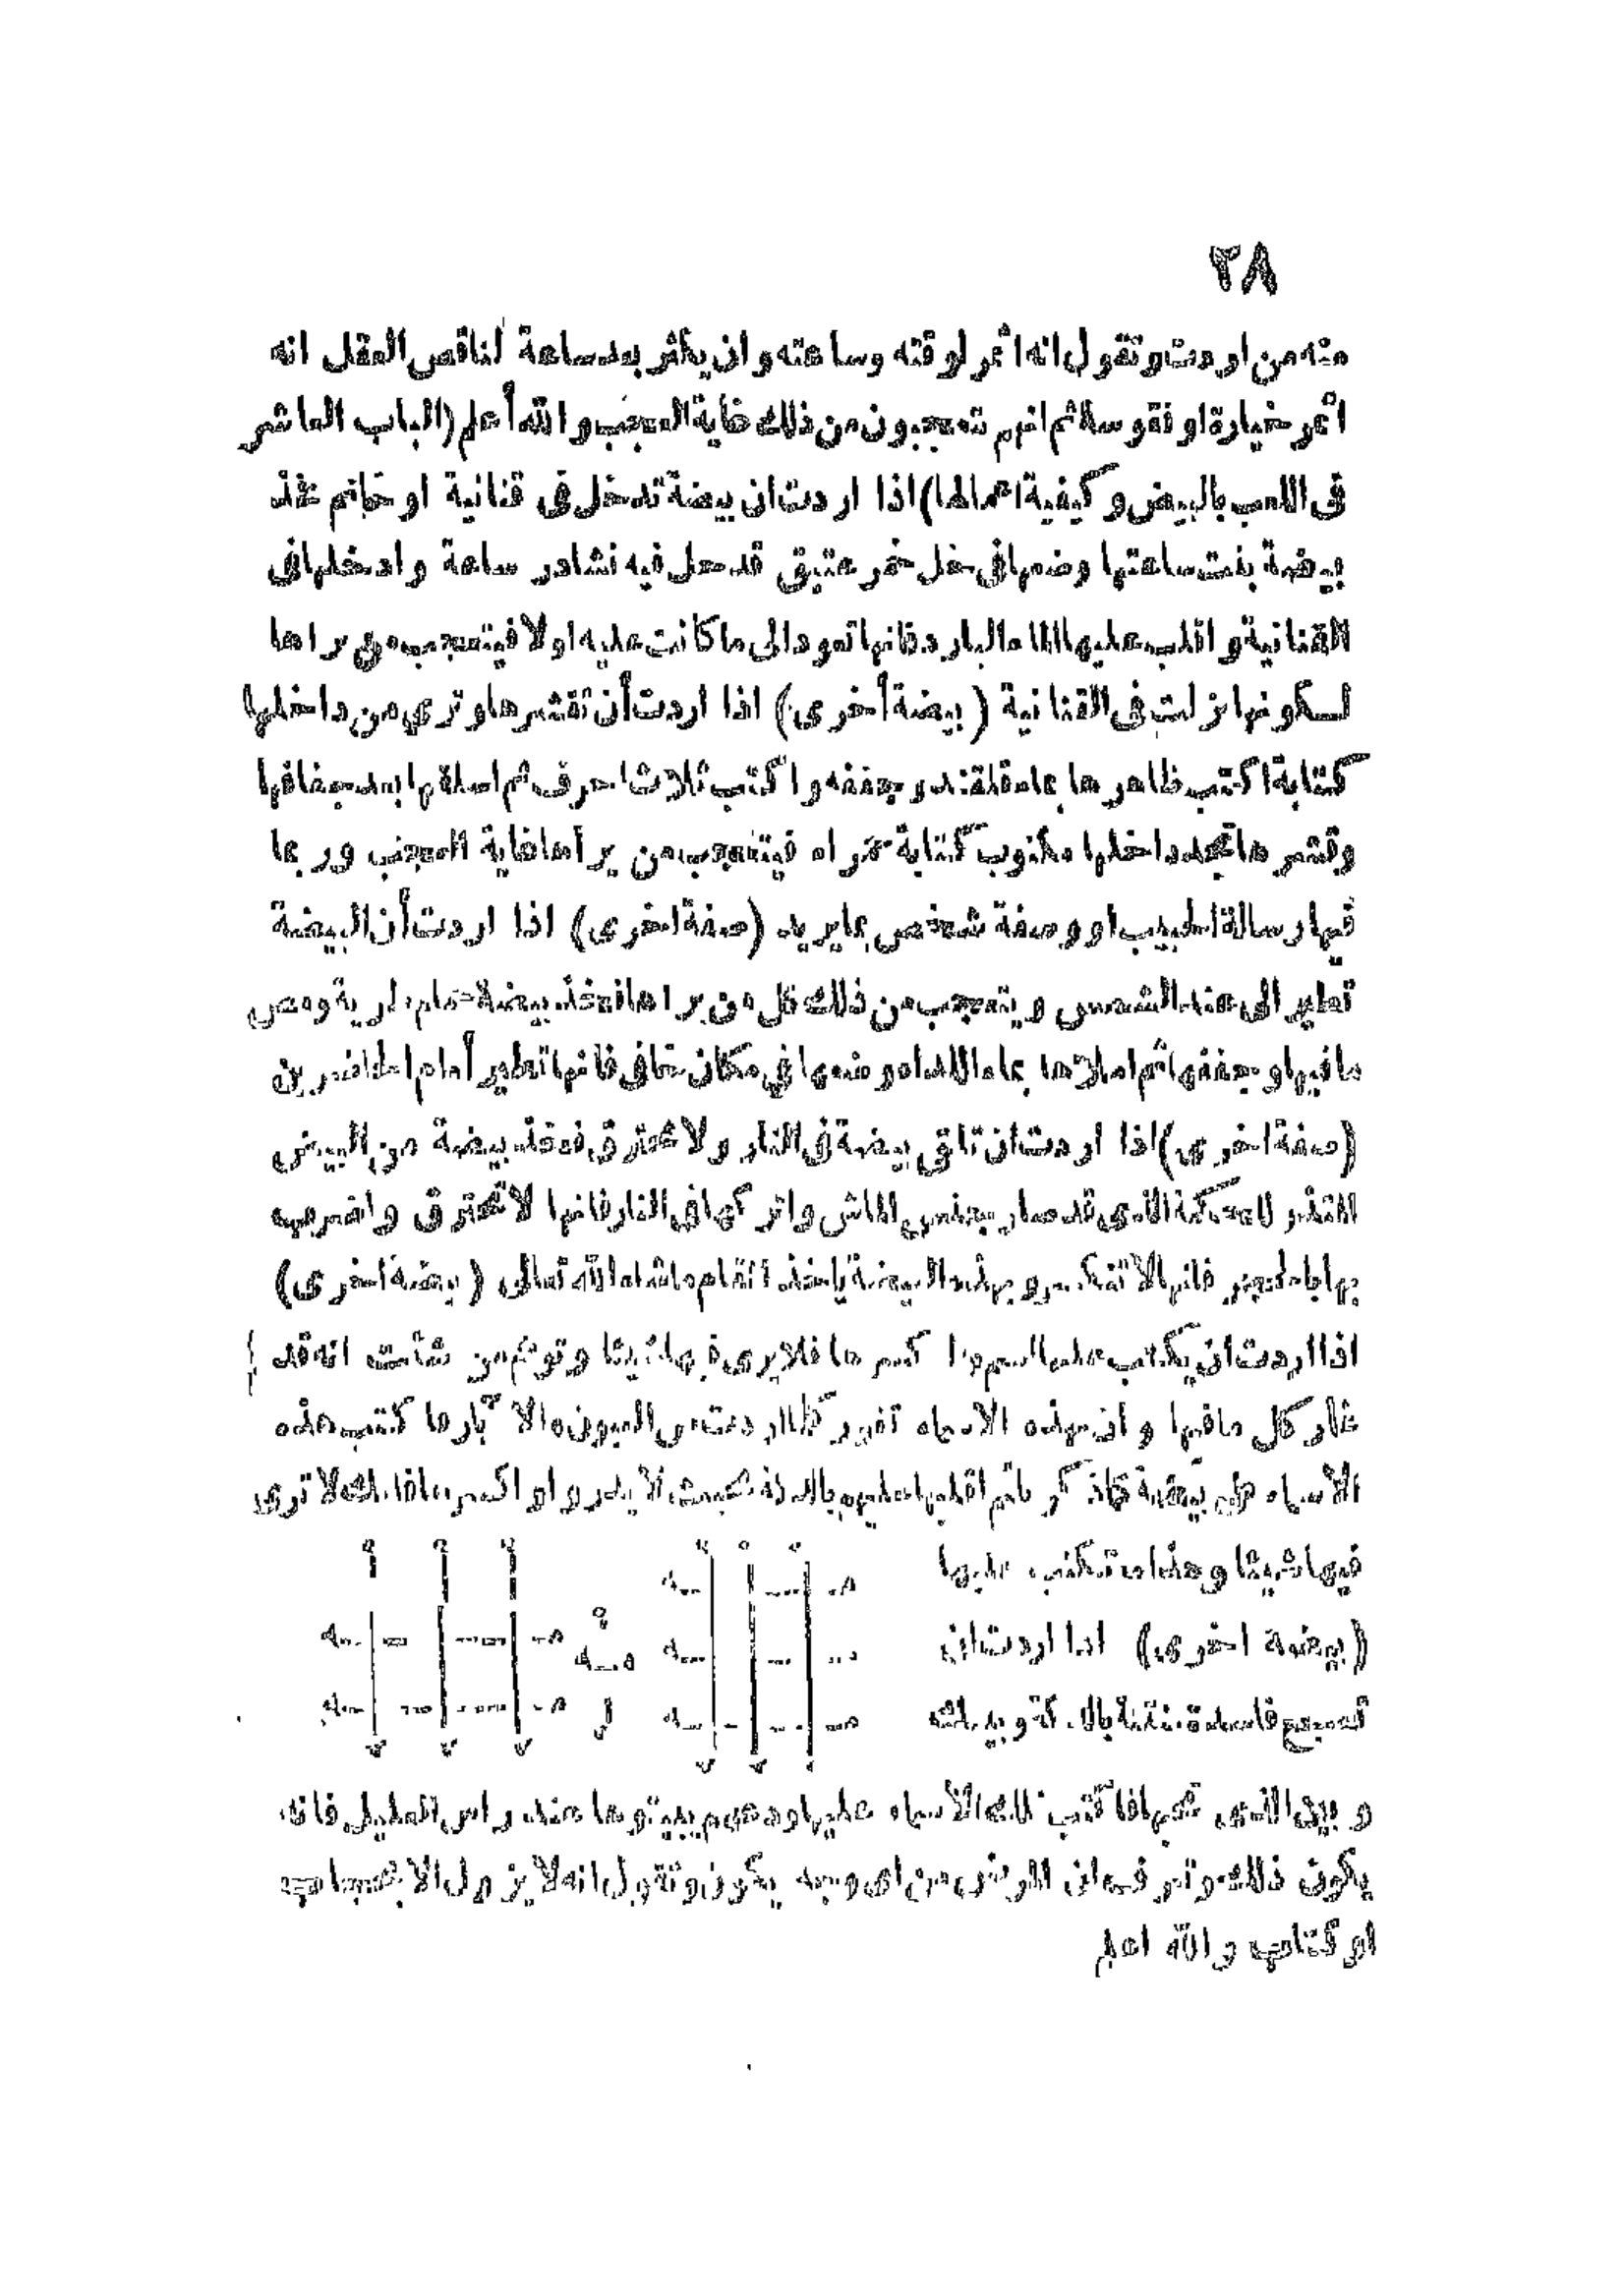 ٢٨
منه من اردت وتقول انه اثمر لوقته وساعته وان يكثر بعد ساعة لناقص العقل انه
اثمر خيارة او فقوسة ثم انهم تعجبون من ذلك غاية العجب والله أعلم (الباب العاشر
فى اللعب بالبيض وكيفية اعمالها) اذا اردت ان بيضة تدخل فى قنانية او خاتم فخذ
بيضة بنت ساعتها وضعها فى خل خمر عتيق قد حل فيه نشادر ساعة وادخلها فى
القنانية واقلب عليها الماء البارد فانها تعود الى ما كانت عليه اولا فيتعجب من يراها
لكونها نزلت فى القنانية (بيضة أخرى) اذا اردت أن تقشرها وترى من داخلها
كتابة اكتب ظاهرها بماء قلقند وجففه واكتب ثلاث احرف ثم اسلقها بعد جفافها
وقشرها تجد داخلها مكتوب كتابة حمراء فيتعجب من يراها غاية العجب وربما
فيها رسالة لطبيب او وصفة شخص بما يريد (صفة اخرى) اذا اردت أن البيضة
تطير الى عند الشمس ويتعجب من ذلك كل من يراها فخذ بيضة حمام برية ومص
ما فيها وجففها ثم املاها بماء الندا وضعها في مكان خافى فانها تطير أمام الحاضرين
(صفة اخرى) اذا اردت ان تلقى بيضة فى النار ولا تحترق فخذ بيضة من البيض
الذى قد صار بجنس الماش واتركها فى النار فانها لا تحترق واضرب
بها الحجر فانها لا تنكسر وبهذه البيضة يا خذ ما شاء الله تعالى (بيضة اخرى)
اذا اردت ان يكتب عليها كسرها فلا يرى فيها شيئا وتوهم من شئت انه قد
غار كل ما فيها وان بهذه الاسماء تغور كلما اردت من العيون والابار ها كتب هذه
الاسماء على بيضة كما ذكرنا ثم لا يدروا واكسرها فانك لا ترى
فيها شيئا وهذا ما تكتب عليها
(بيضة اخرى) اذا اردت ان
تصبح فاسدة منتنة
وبين الذى تحبها فاكتب تلك الاسماء عليها ودعهم يبيتوها عند راس العليل فانه
يكون ذلك وتعرفهم ان المرض من اى وجه يكون وتقول انه لا يزول الا بحجاب
او كتاب والله اعلم